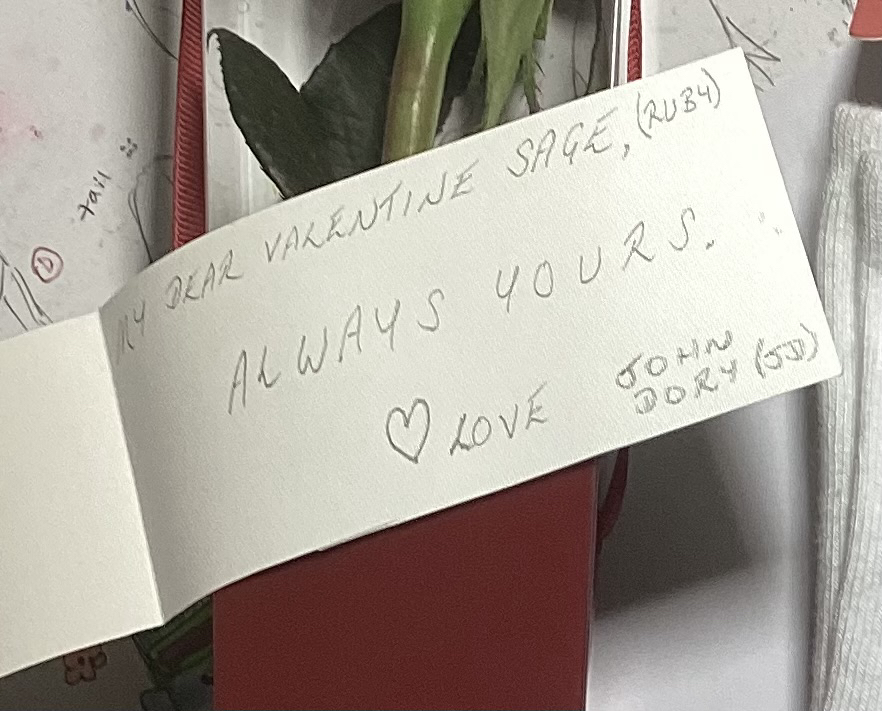 MY DEAR VALENTINE SAGE, (RUBY)
ALWAYS YOURS.
♡ LOVE JOHN
DORY (JD)
tail
①